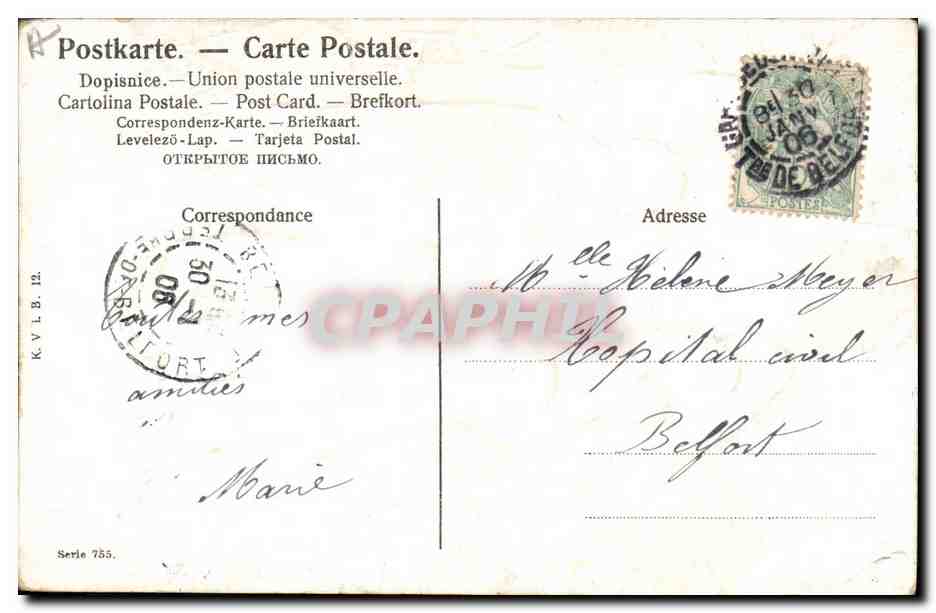 Postkarte. — Carte Postale.
Dopisnice.—Union postale universelle.
Cartolina Postale. — Post Card. — Brefkort.
Correspondenz-Karte. — Briefkaart.
Levelező-Lap. — Tarjeta Postal.
ОТКРЫТОЕ ПИСЬМО.
8E 30
JANV
06
Tre DE BELFORT
POSTES
Correspondance
Adresse
30 - 1
06
BELFORT
K. V I. B. 12.
Toutes mes
amitiés
Marie
Mlle Hélène Meyer
Hopital civil
Belfort
CPAPHIL
Serie 755.